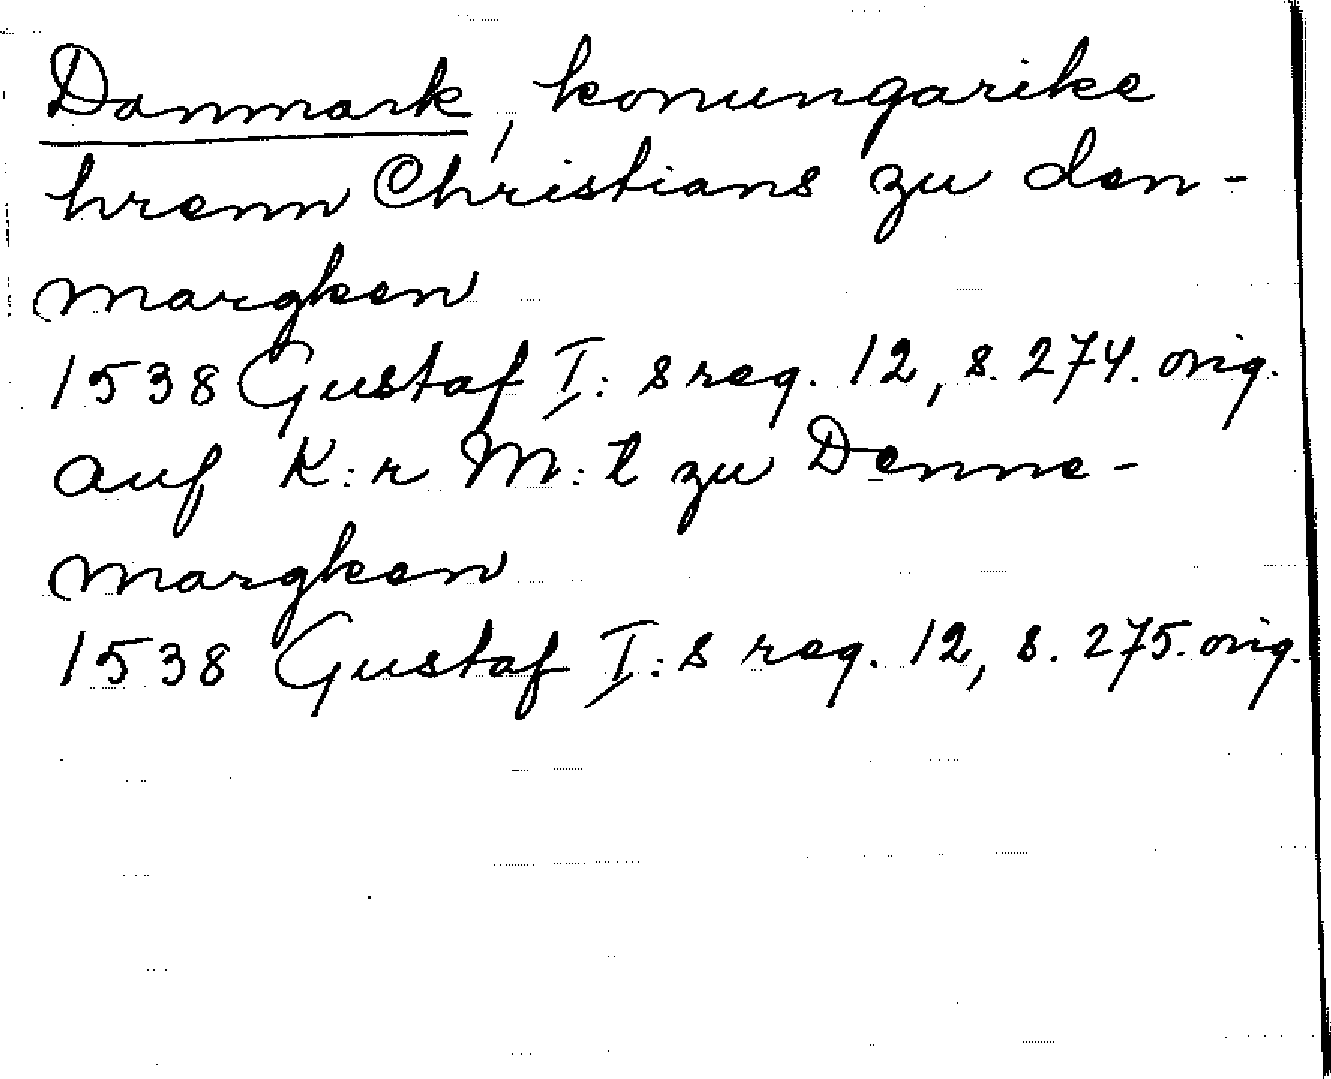 Danmark, konungarike
hrenn Christians zu den-
margken
1538 Gustaf I:s reg. 12, s. 274. orig.
auf K:r M:t zu Denne-
margken
1538 Gustaf I:s reg. 12, s. 275. orig.